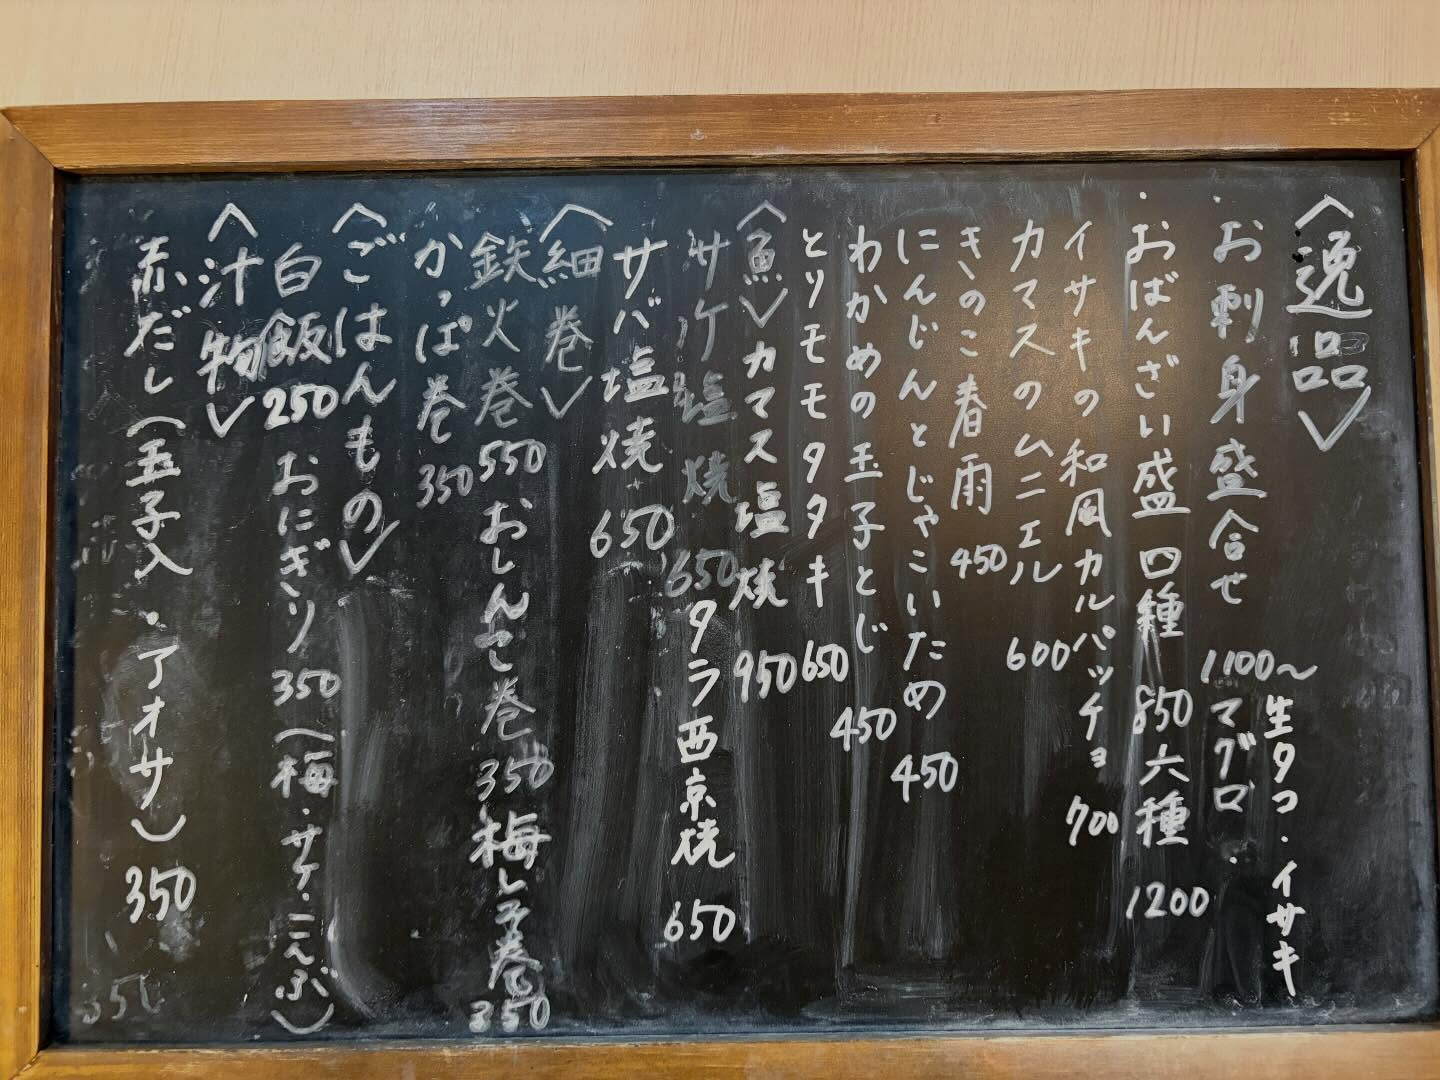 〈逸品〉
お刺身盛合せ 1100〜 生タコ・イサキ
マグロ・
・おばんざい盛 四種 850 六種 1200
イサキの和風カルパッチョ 700
カマスのムニエル 600
きのこ春雨 450
にんじんとじゃこいため 450
わかめの玉子とじ 450
とりモモタタキ 650
〈魚〉カマス塩焼 950
サケ塩焼 650 タラ西京焼 650
サバ塩焼 650
〈細巻〉
鉄火巻 550 おしんこ巻 350 梅しそ巻 350
かっぱ巻 350
〈ごはんもの〉
白飯 250 おにぎり 350 (梅・サケ・こんぶ)
〈汁物〉
赤だし(玉子入・アオサ) 350